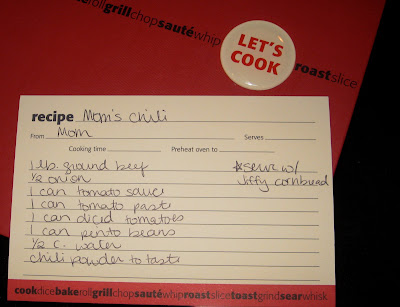 bakerollgrillchopsautéwhip
LET'S
COOK
roastslice
recipe Mom's chili
From Mom Serves
Cooking time Preheat oven to
1 lb. ground beef
1/2 onion
1 can tomato sauce
1 can tomato paste
1 can diced tomatoes
1 can pinto beans
1/2 c. water
chili powder to taste
*serve w/
Jiffy cornbread
cookdicebakerollgrillchopsautéwhiproastslicetoastgrindsearwhisk